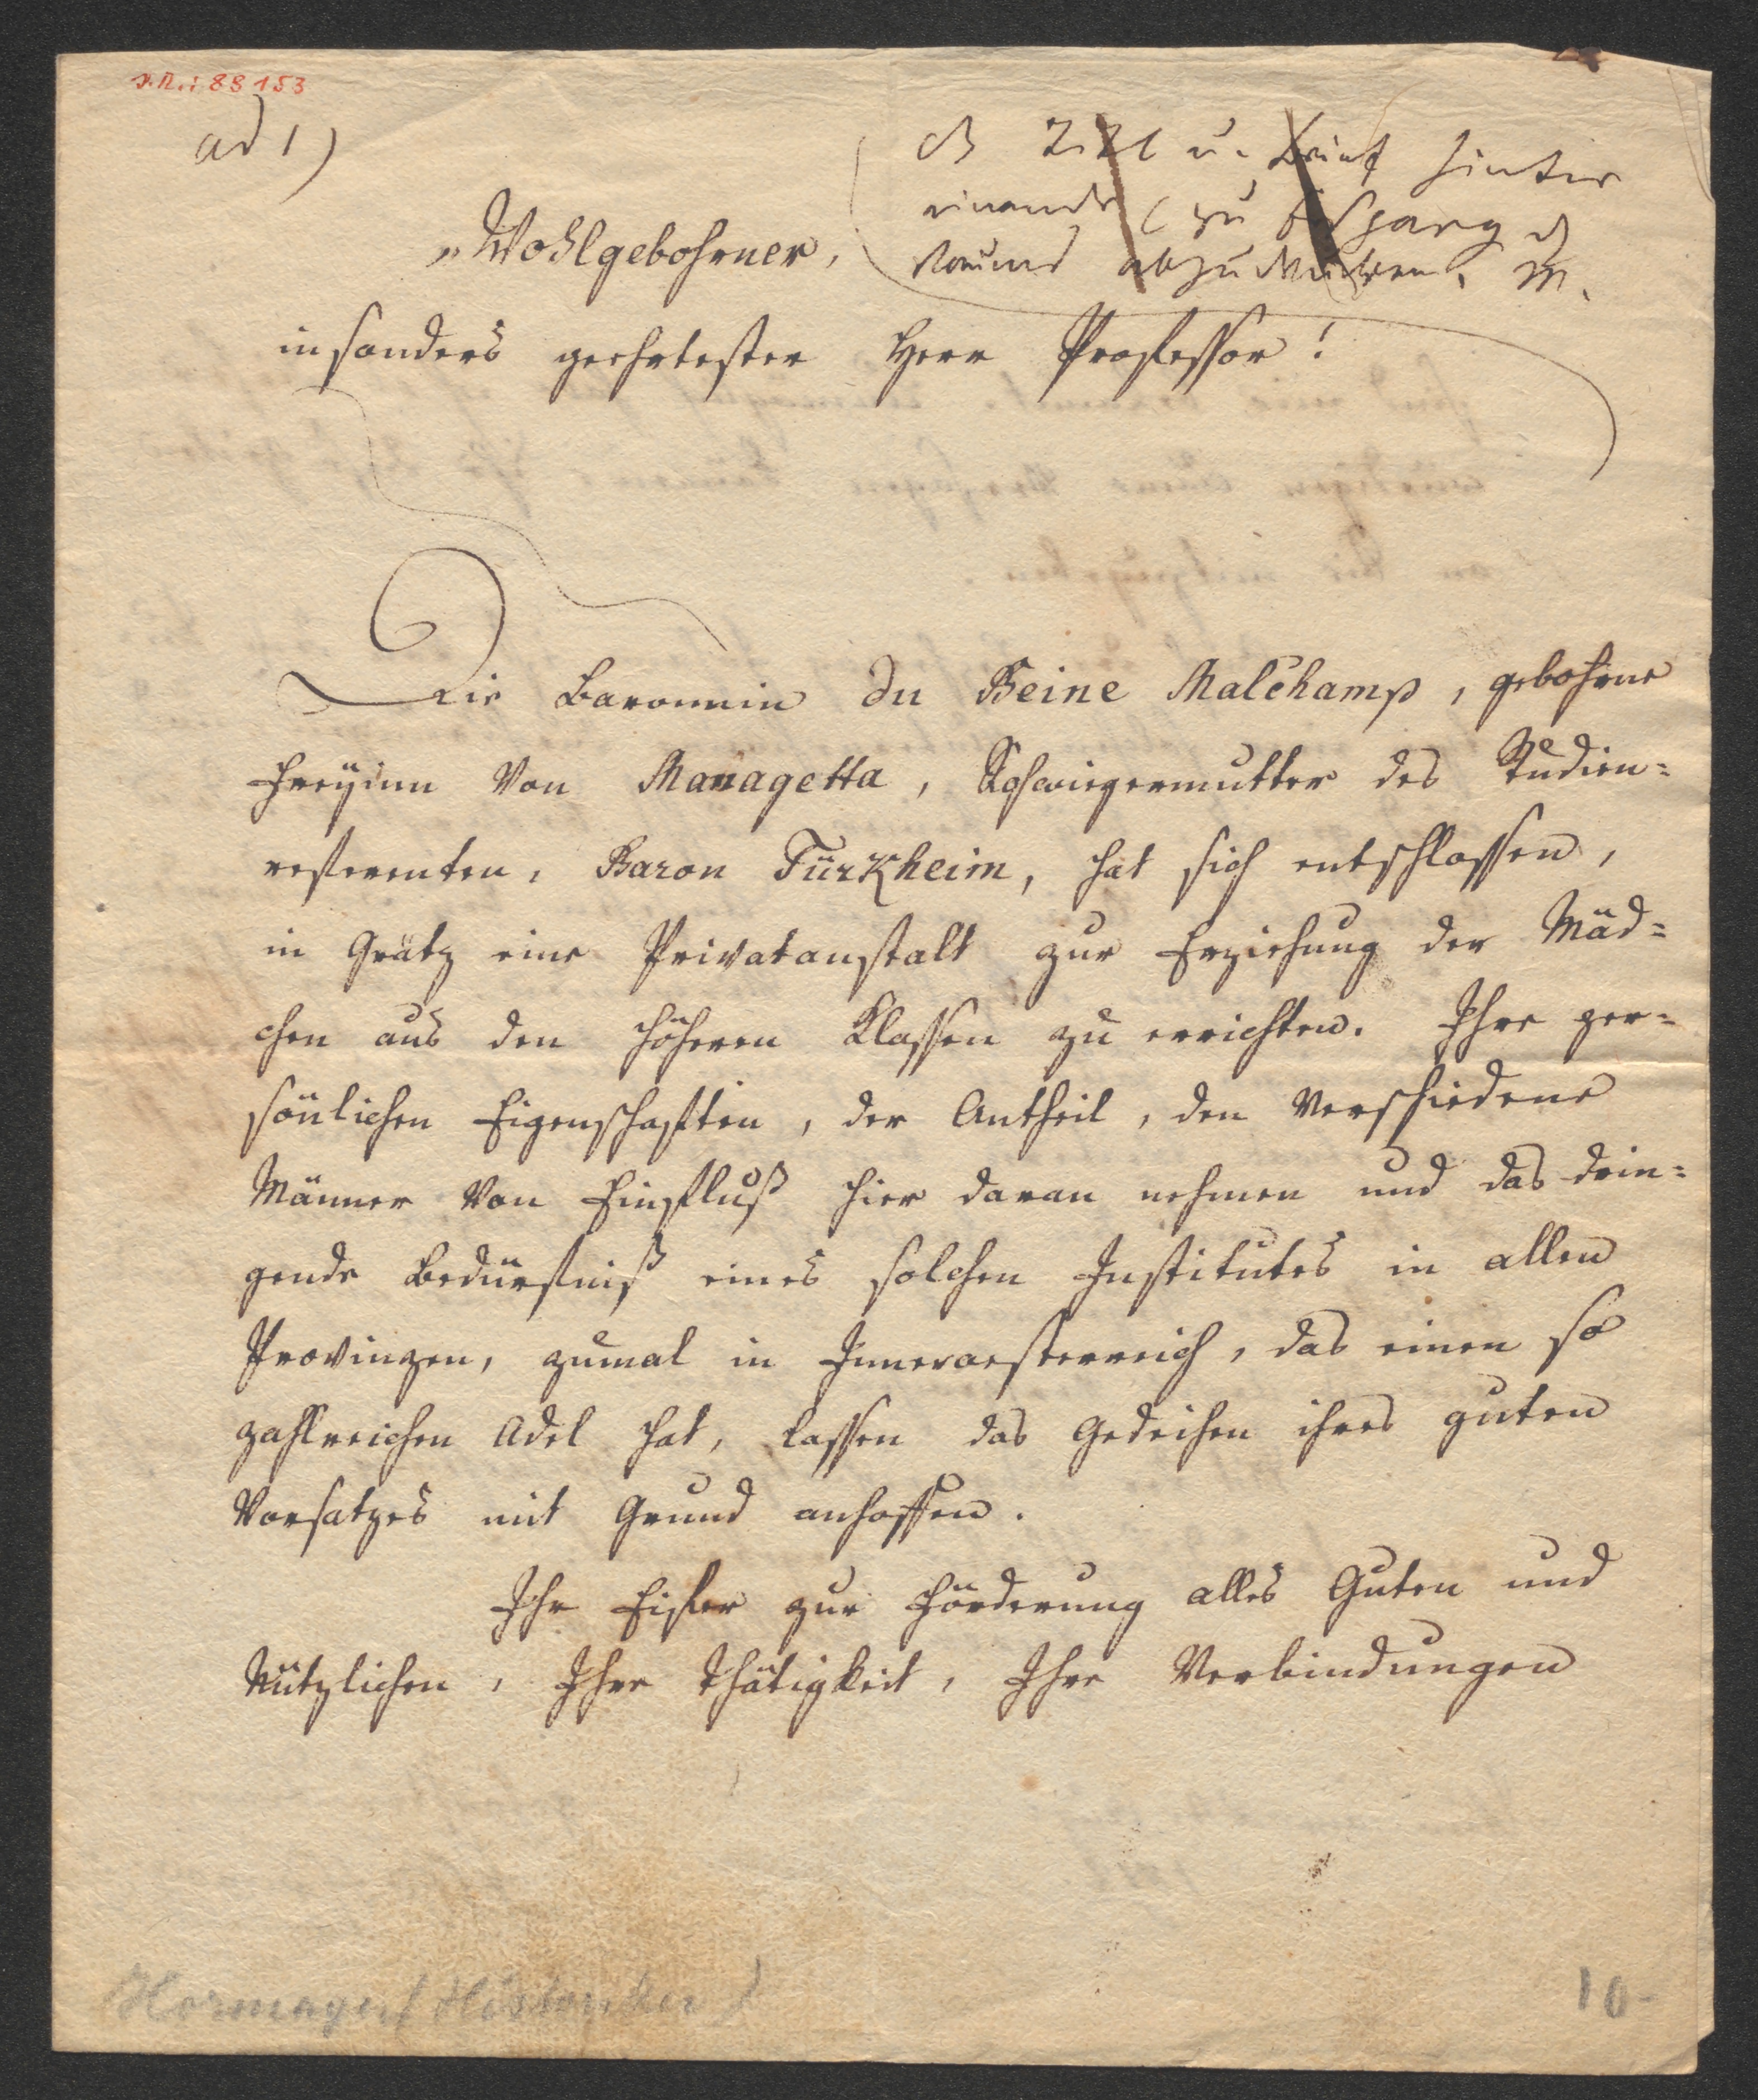 I.N.: 88153
ad 1)
Titl u. hinter
einander (zu Ersparung d
Raums abzudrucken. M.
„Wohlgebohrner,
insonders geehrtester Herr Professor!
Die Baronnin du Beine Malchamp, gebohrne
Freÿinn von Managetta, Schwiegermutter des Studien=
referenten, Baron Türkheim, hat sich entschlossen,
in Grätz eine Privatanstalt zur Erziehung der Mäd=
chen aus den höheren Klassen zu errichten. Ihre per=
sönlichen Eigenschaften, der Antheil, den verschiedene
Männer von Einfluß hier daran nehmen und das drin=
gende Bedürfniß eines solchen Institutes in allen
Provinzen, zumal in Inneroesterreich, das einen so
zahlreichen Adel hat, lassen das Gedeihen ihres guten
Vorsatzes mit Grund anhoffen.
Ihr Eifer zur Förderung alles Guten und
Nützlichen, Ihre Thätigkeit, Ihre Verbindungen
Hormayer (Historiker)
10-